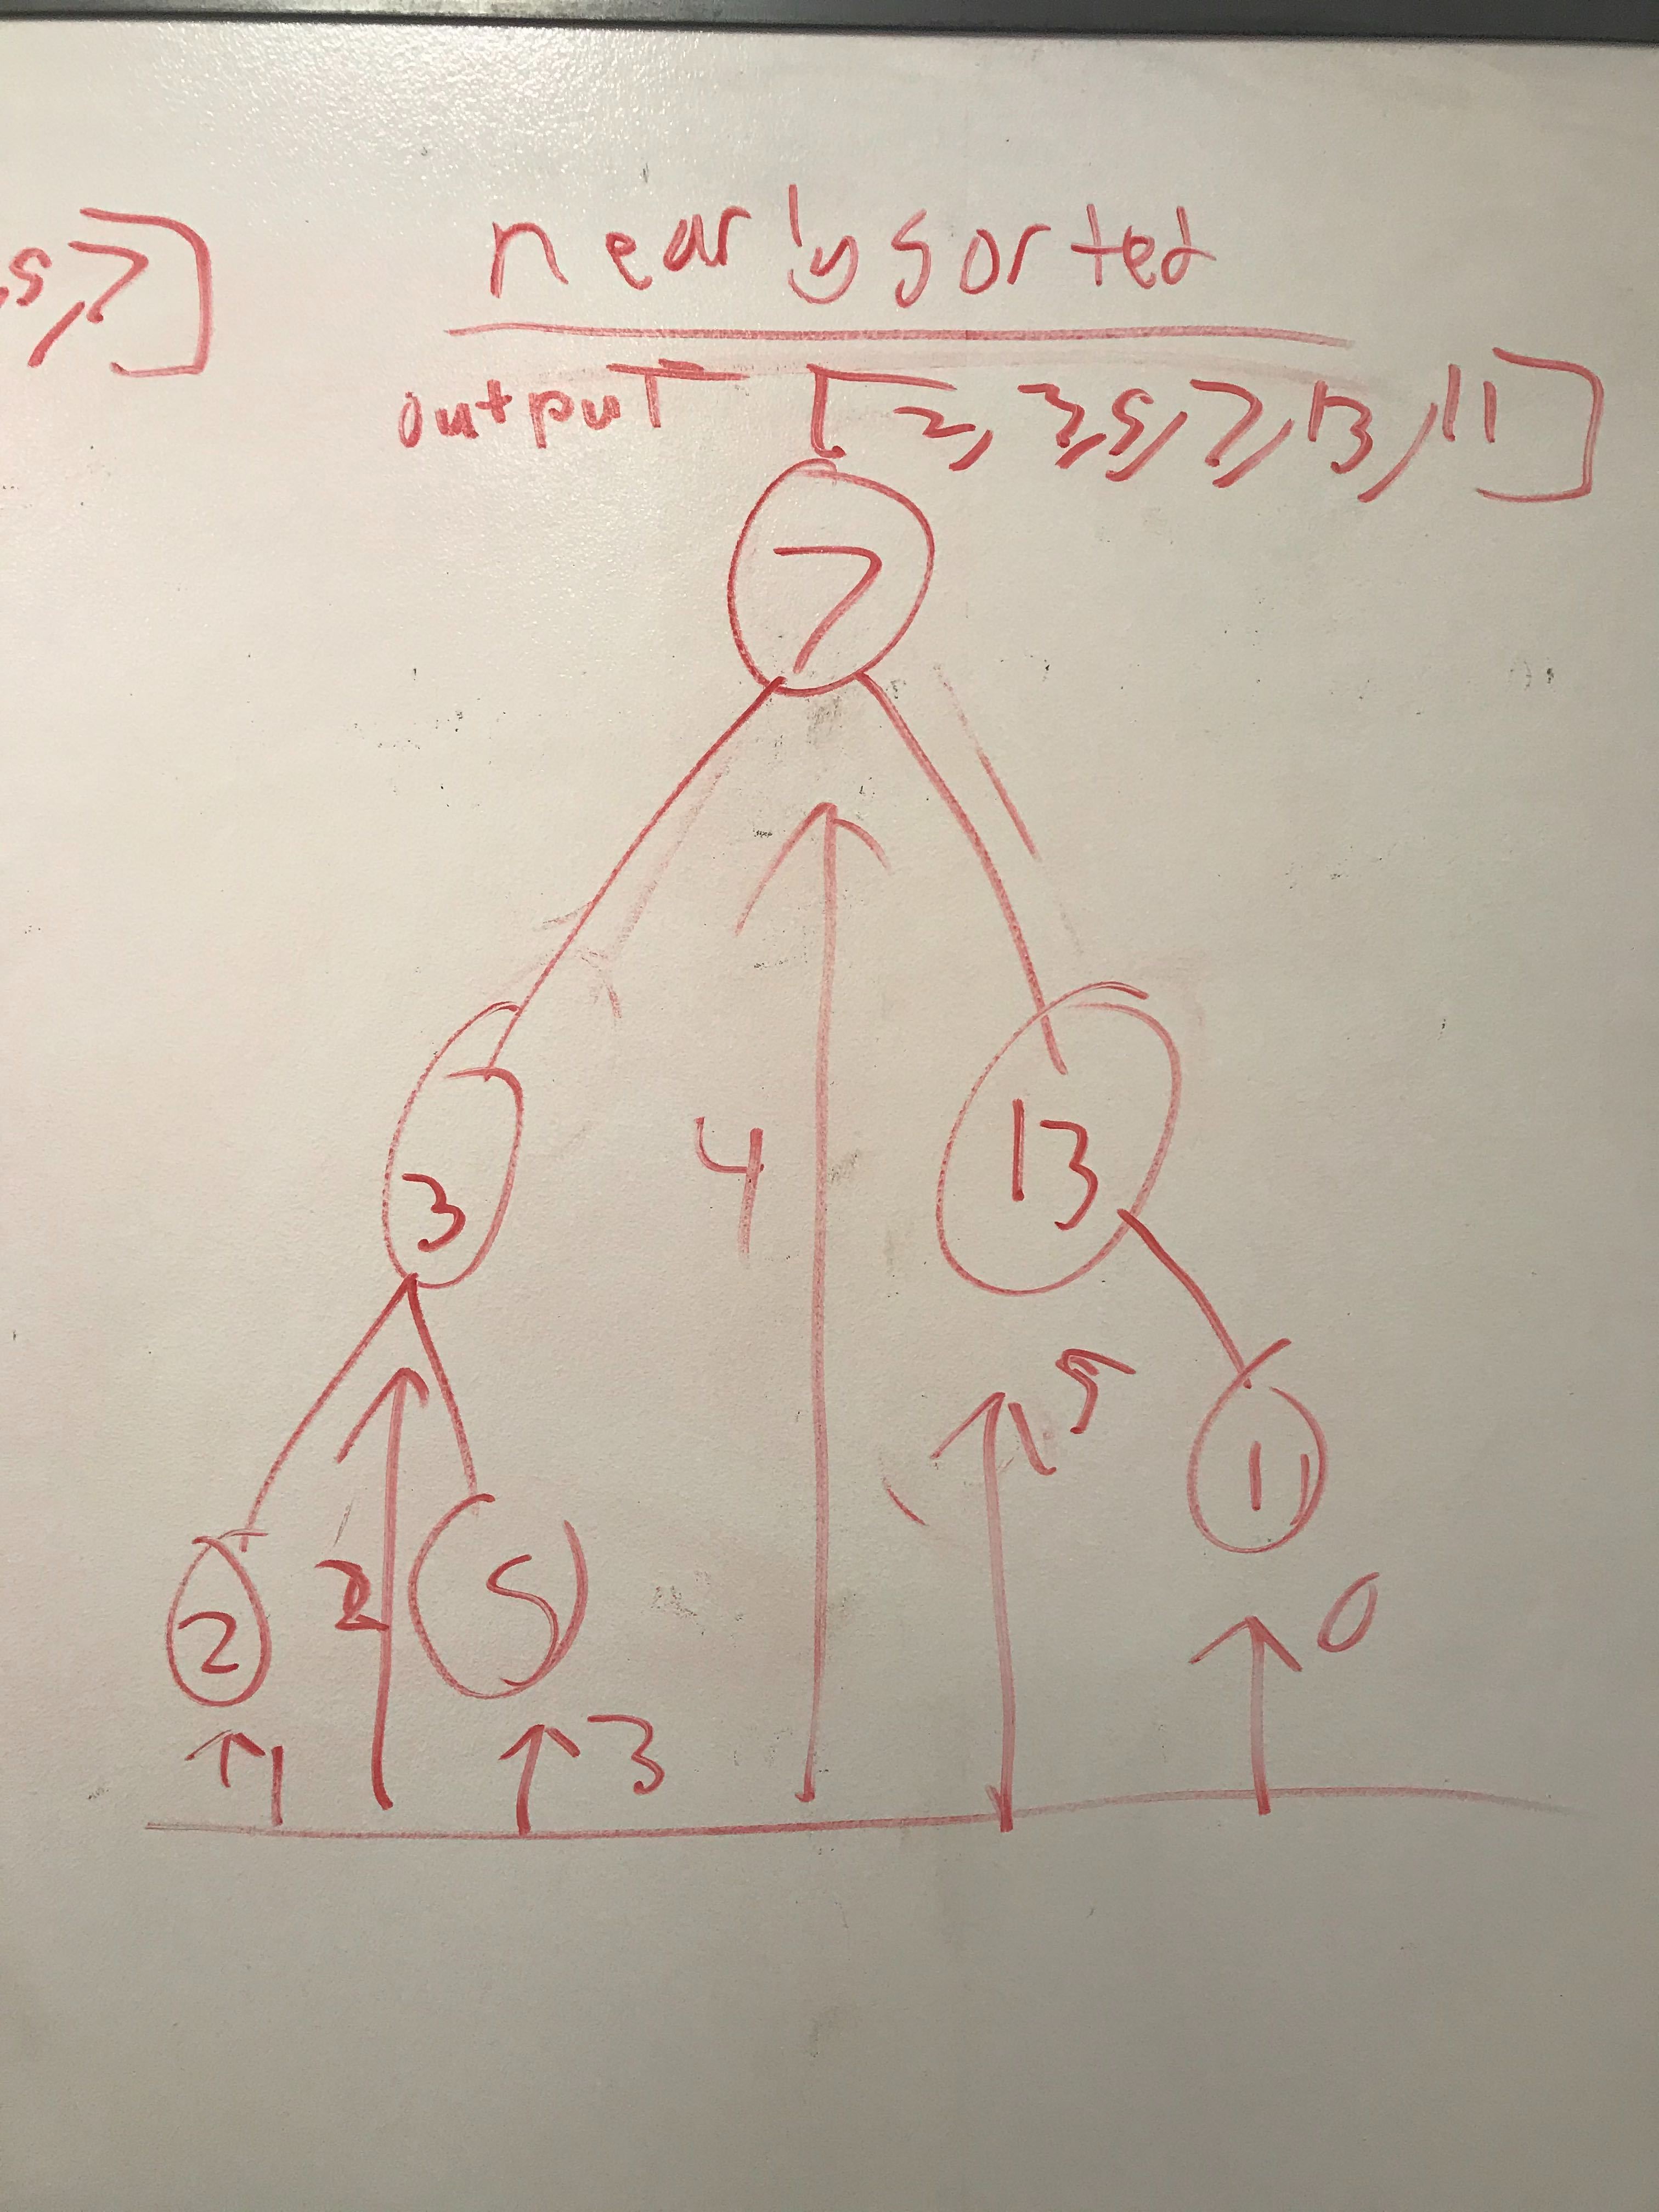 nearly sorted
,5,7]
output [2,3,5,7,13,11]
7
3
4
13
5
11
2
2
5
0
1
3